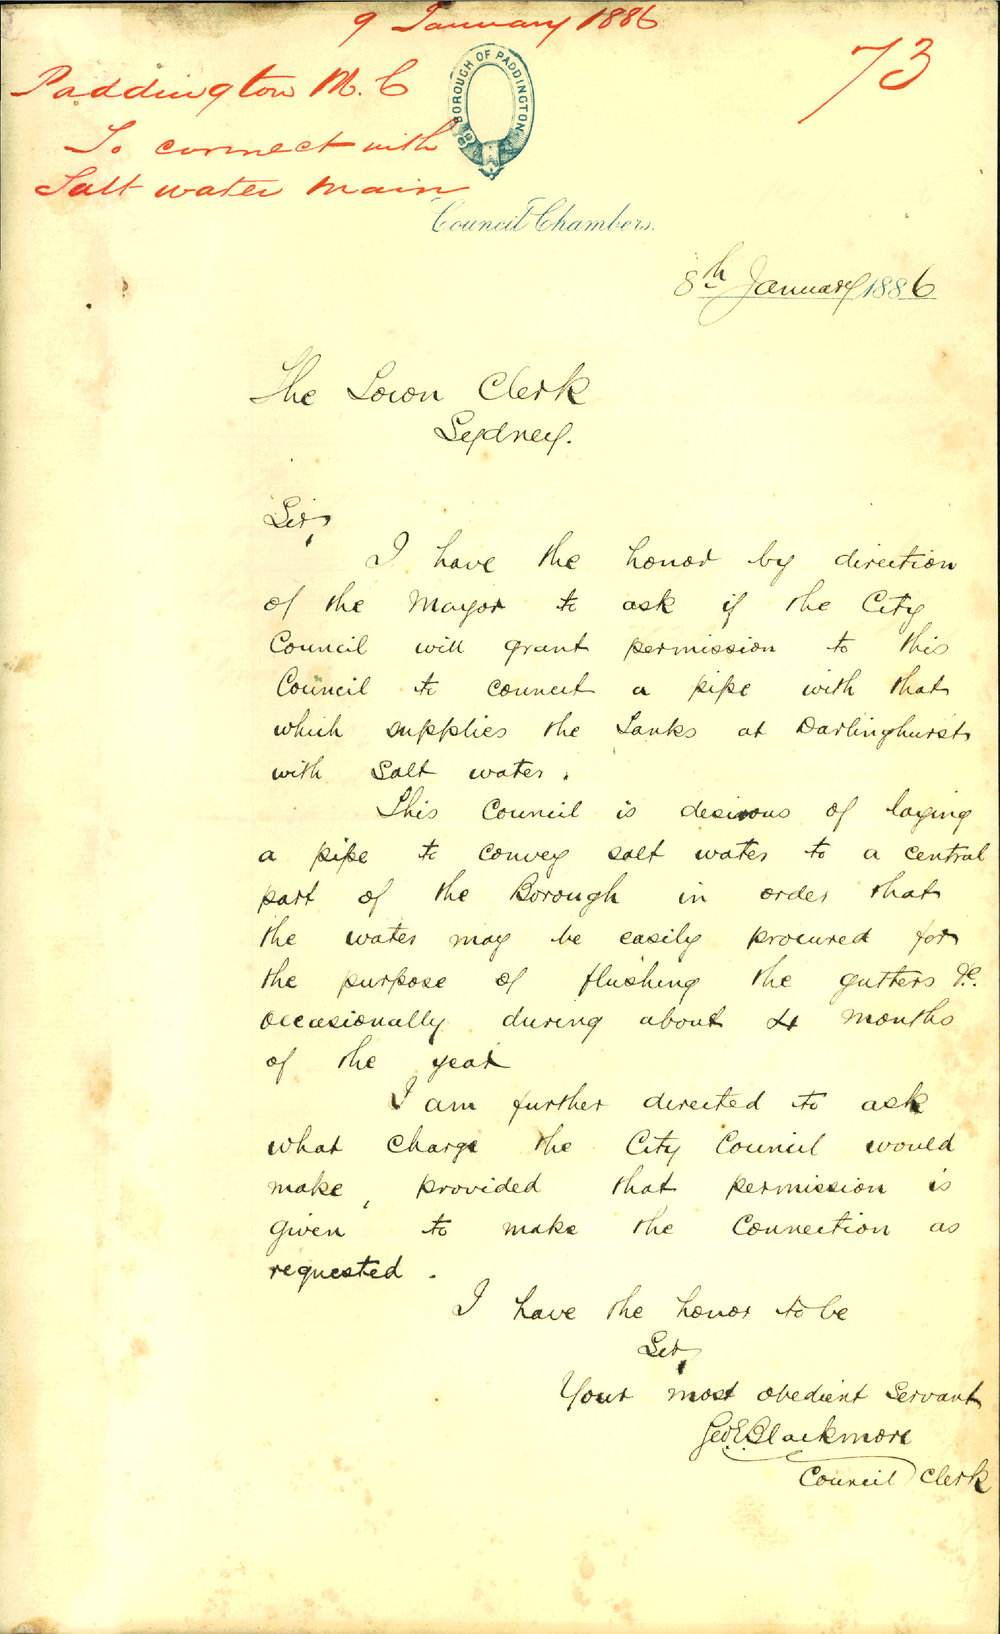 9 January 1886
73
Paddington M. C
To connect with
Salt water main
BOROUGH OF PADDINGTON
Council Chambers.
8th January 1886
The Town Clerk
Sydney.
Sir,
I have the honor by direction
of the Mayor to ask if the City
Council will grant permission to this
Council to connect a pipe with that
which supplies the Tanks at Darlinghurst
with Salt water.
This Council is desirous of laying
a pipe to convey salt water to a central
part of the Borough in order that
the water may be easily procured for
the purpose of flushing the gutters &c.
occasionally during about 4 months
of the year
I am further directed to ask
what charge the City Council would
make, provided that permission is
given to make the Connection as
requested.
I have the honor to be
Sir,
Your most obedient Servant
Geo E. Blackmore
Council Clerk